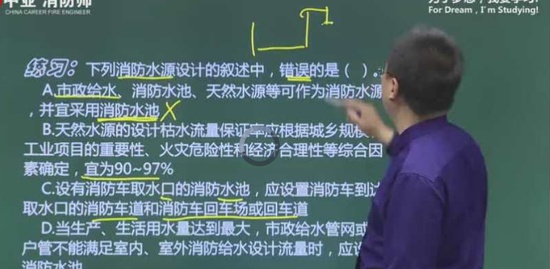 中业·消防师
CHINA CAREER FIRE ENGINEER
For Dream, I'm Studying!
练习：下列消防水源设计的叙述中，错误的是（ ）。
A.市政给水、消防水池、天然水源等可作为消防水源
，并宜采用消防水池 X
B.天然水源的设计枯水流量保证率应根据城乡规模
工业项目的重要性、火灾危险性和经济合理性等综合因
素确定，宜为90~97%
C.设有消防车取水口的消防水池，应设置消防车到达
取水口的消防车道和消防车回车场或回车道
D.当生产、生活用水量达到最大，市政给水管网或
户管不能满足室内、室外消防给水设计流量时，应设
消防水池